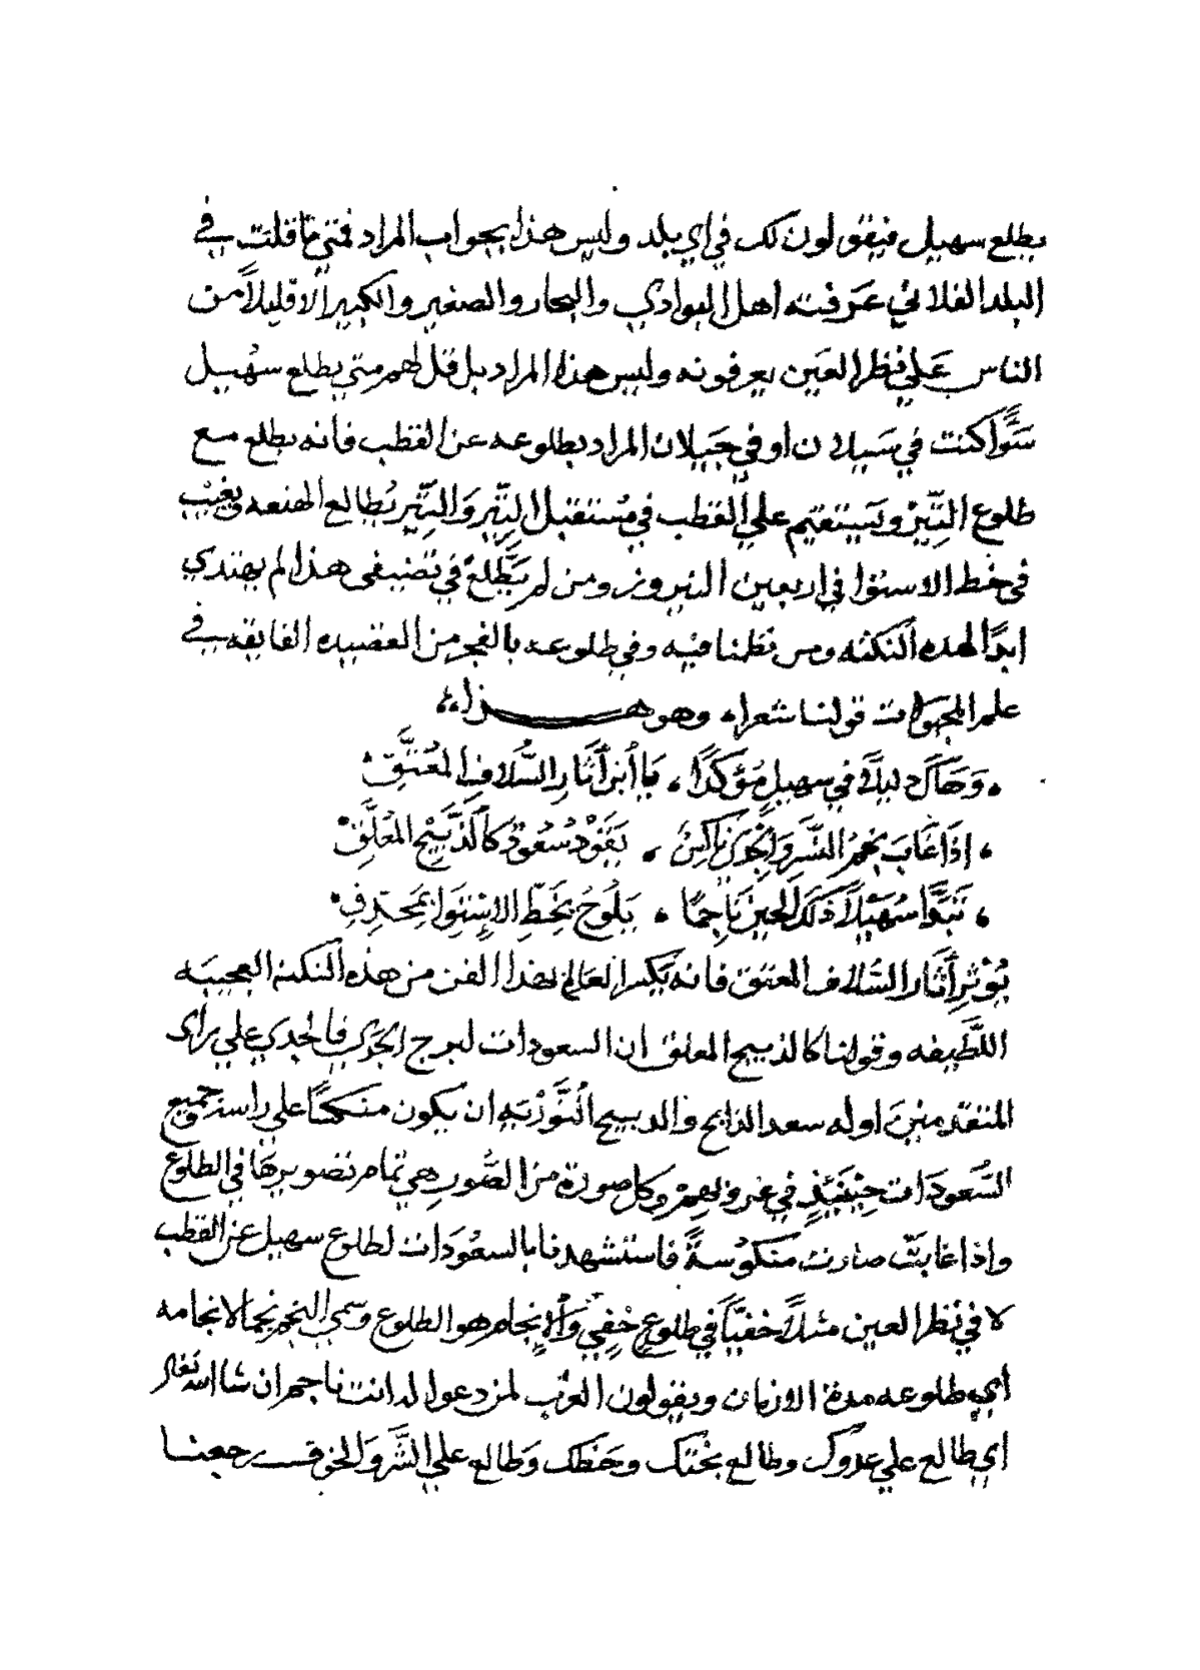 يطلع سهيل فيقولون لك في اي بلد وليس هذا بجواب المراد فمتي ما قلت في
البلد الفلاني عرفته اهل البوادي والبحار والصغير والكبير الا قليلاً من
الناس علي نظر العين يعرفونه وليس هذا المراد بل قل لهم متي يطلع سهيل
سوّاً كنت في سيلان او في جيلان المراد بطلوعه عن القطب فانه يطلع مع
طلوع التير ويستقيم علي القطب في مستقبل التير والتير يطالع الهنعه ويغيب
في خط الاستوا في اربعين النيروز ومن لم يطلع في تصنيفي هذا لم يهتدي
ابداً لهذه النكته ومن نظمنا فيه وفي طلوعه بالفجر من القصيده الفايقه في
علم المجهولات قولنا شعرا، وهو هـذا
وهاك دليلاً في سهيل مؤكداً، يا ابن آثار السُّلاف المعتَّق
إذا غاب نجم النسر والجدي ناكس، يقود سعود كالذبيح المعلَّق
تبدّا سهيلاً ذلك الحين ناجماً، يلوح بخط الاستوا
يؤثر آثار السلاف المعتق فانه يكسر العالم بهذا الفن من هذه النكته العجيبه
اللطيفه وقولنا كالذبيح المعلق ان السعودات لبرج الجدي فالجدي علي رأى
المتقدمين اوله سعد الذابح والذبيح التورية ان يكون منكساً علي راسه جميع
السعودات حينئذٍ في غروبهم وكل صورة من الصُّور هي تمام تصويرها في الطلوع
واذا غابت صارت منكوسةً فاستشهدنا بالسعودات لطلوع سهيل عن القطب
لا في نظر العين مثلاً خفيّاً في طلوعٍ خفيٍ والإنجام هو الطلوع وسمي النجم نجماً لانجامه
اي طلوعه مدة الازمان ويقولون العرب لمن دعوا له انت ناجم ان شا الله تعالى
اي طالع علي عدوك وطالع بختك وحظك وطالع علي الشر والخوف رجعنا